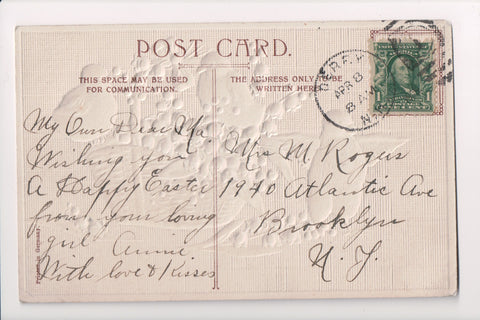 POST CARD.
THIS SPACE MAY BE USED
FOR COMMUNICATION.
THE ADDRESS ONLY TO BE
WRITTEN HERE
APR 8
8 AM
N.Y.
My Own Dear Ma.
Wishing you
A Happy Easter
from your loving
girl Annie.
With love & Kisses
Mrs M Rogers
1940 Atlantic Ave
Brooklyn
N. Y.
Printed in Germany.